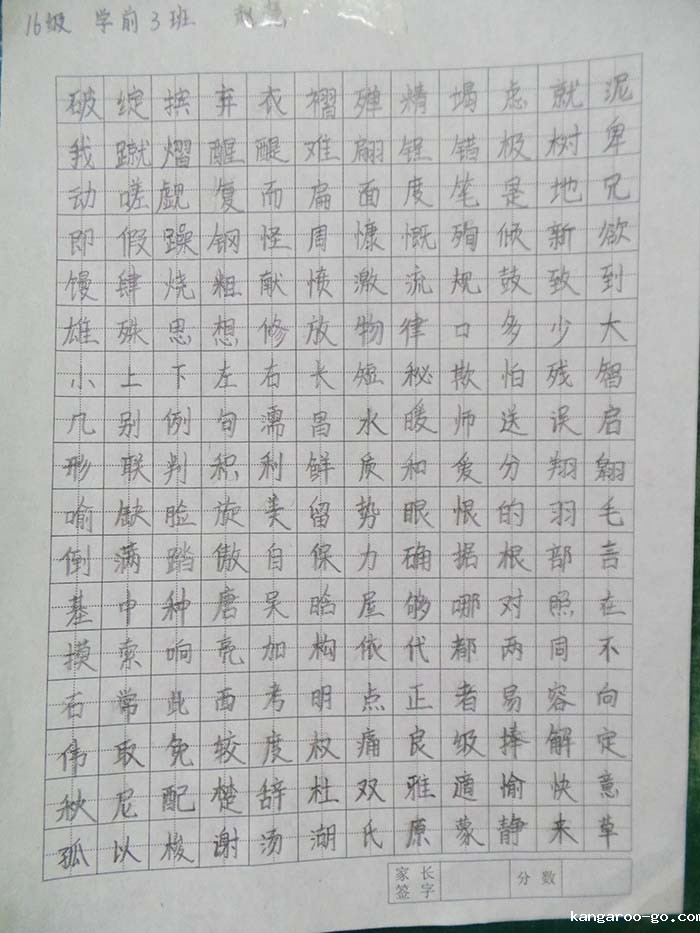 16级 学前3班
破绽摈弃衣褶殚精竭虑就泥
我蹴熠醒醍难翩铿错极树卑
动嗟觑复而扁面度笔是地兄
即假躁钢怪周慷慨殉倾新欲
馒肆烧粗献愤激流规鼓致到
雄殊思想修放物律口多少大
小上下左右长短秘欺怕残智
几别例句濡昌水暖师送误启
形联判积利鲜质和爱分翔翱
喻缺脸旋美留势眼恨的羽毛
倒满踏傲自保力确据根部言
基中种唐吴晗屋够哪对照在
摸索响亮加构依代都两同不
石常此西考明点正者易容向
伟取免较度权痛良级捧解定
秋尼配楚辞杜双雅遁愉快意
孤以梭谢汤湖氏原蒙静来草
家长签字 分数
kangaroo-go.com